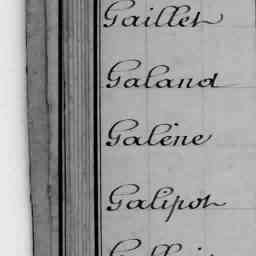 Gaillet
Galand
Galéne
Galipot